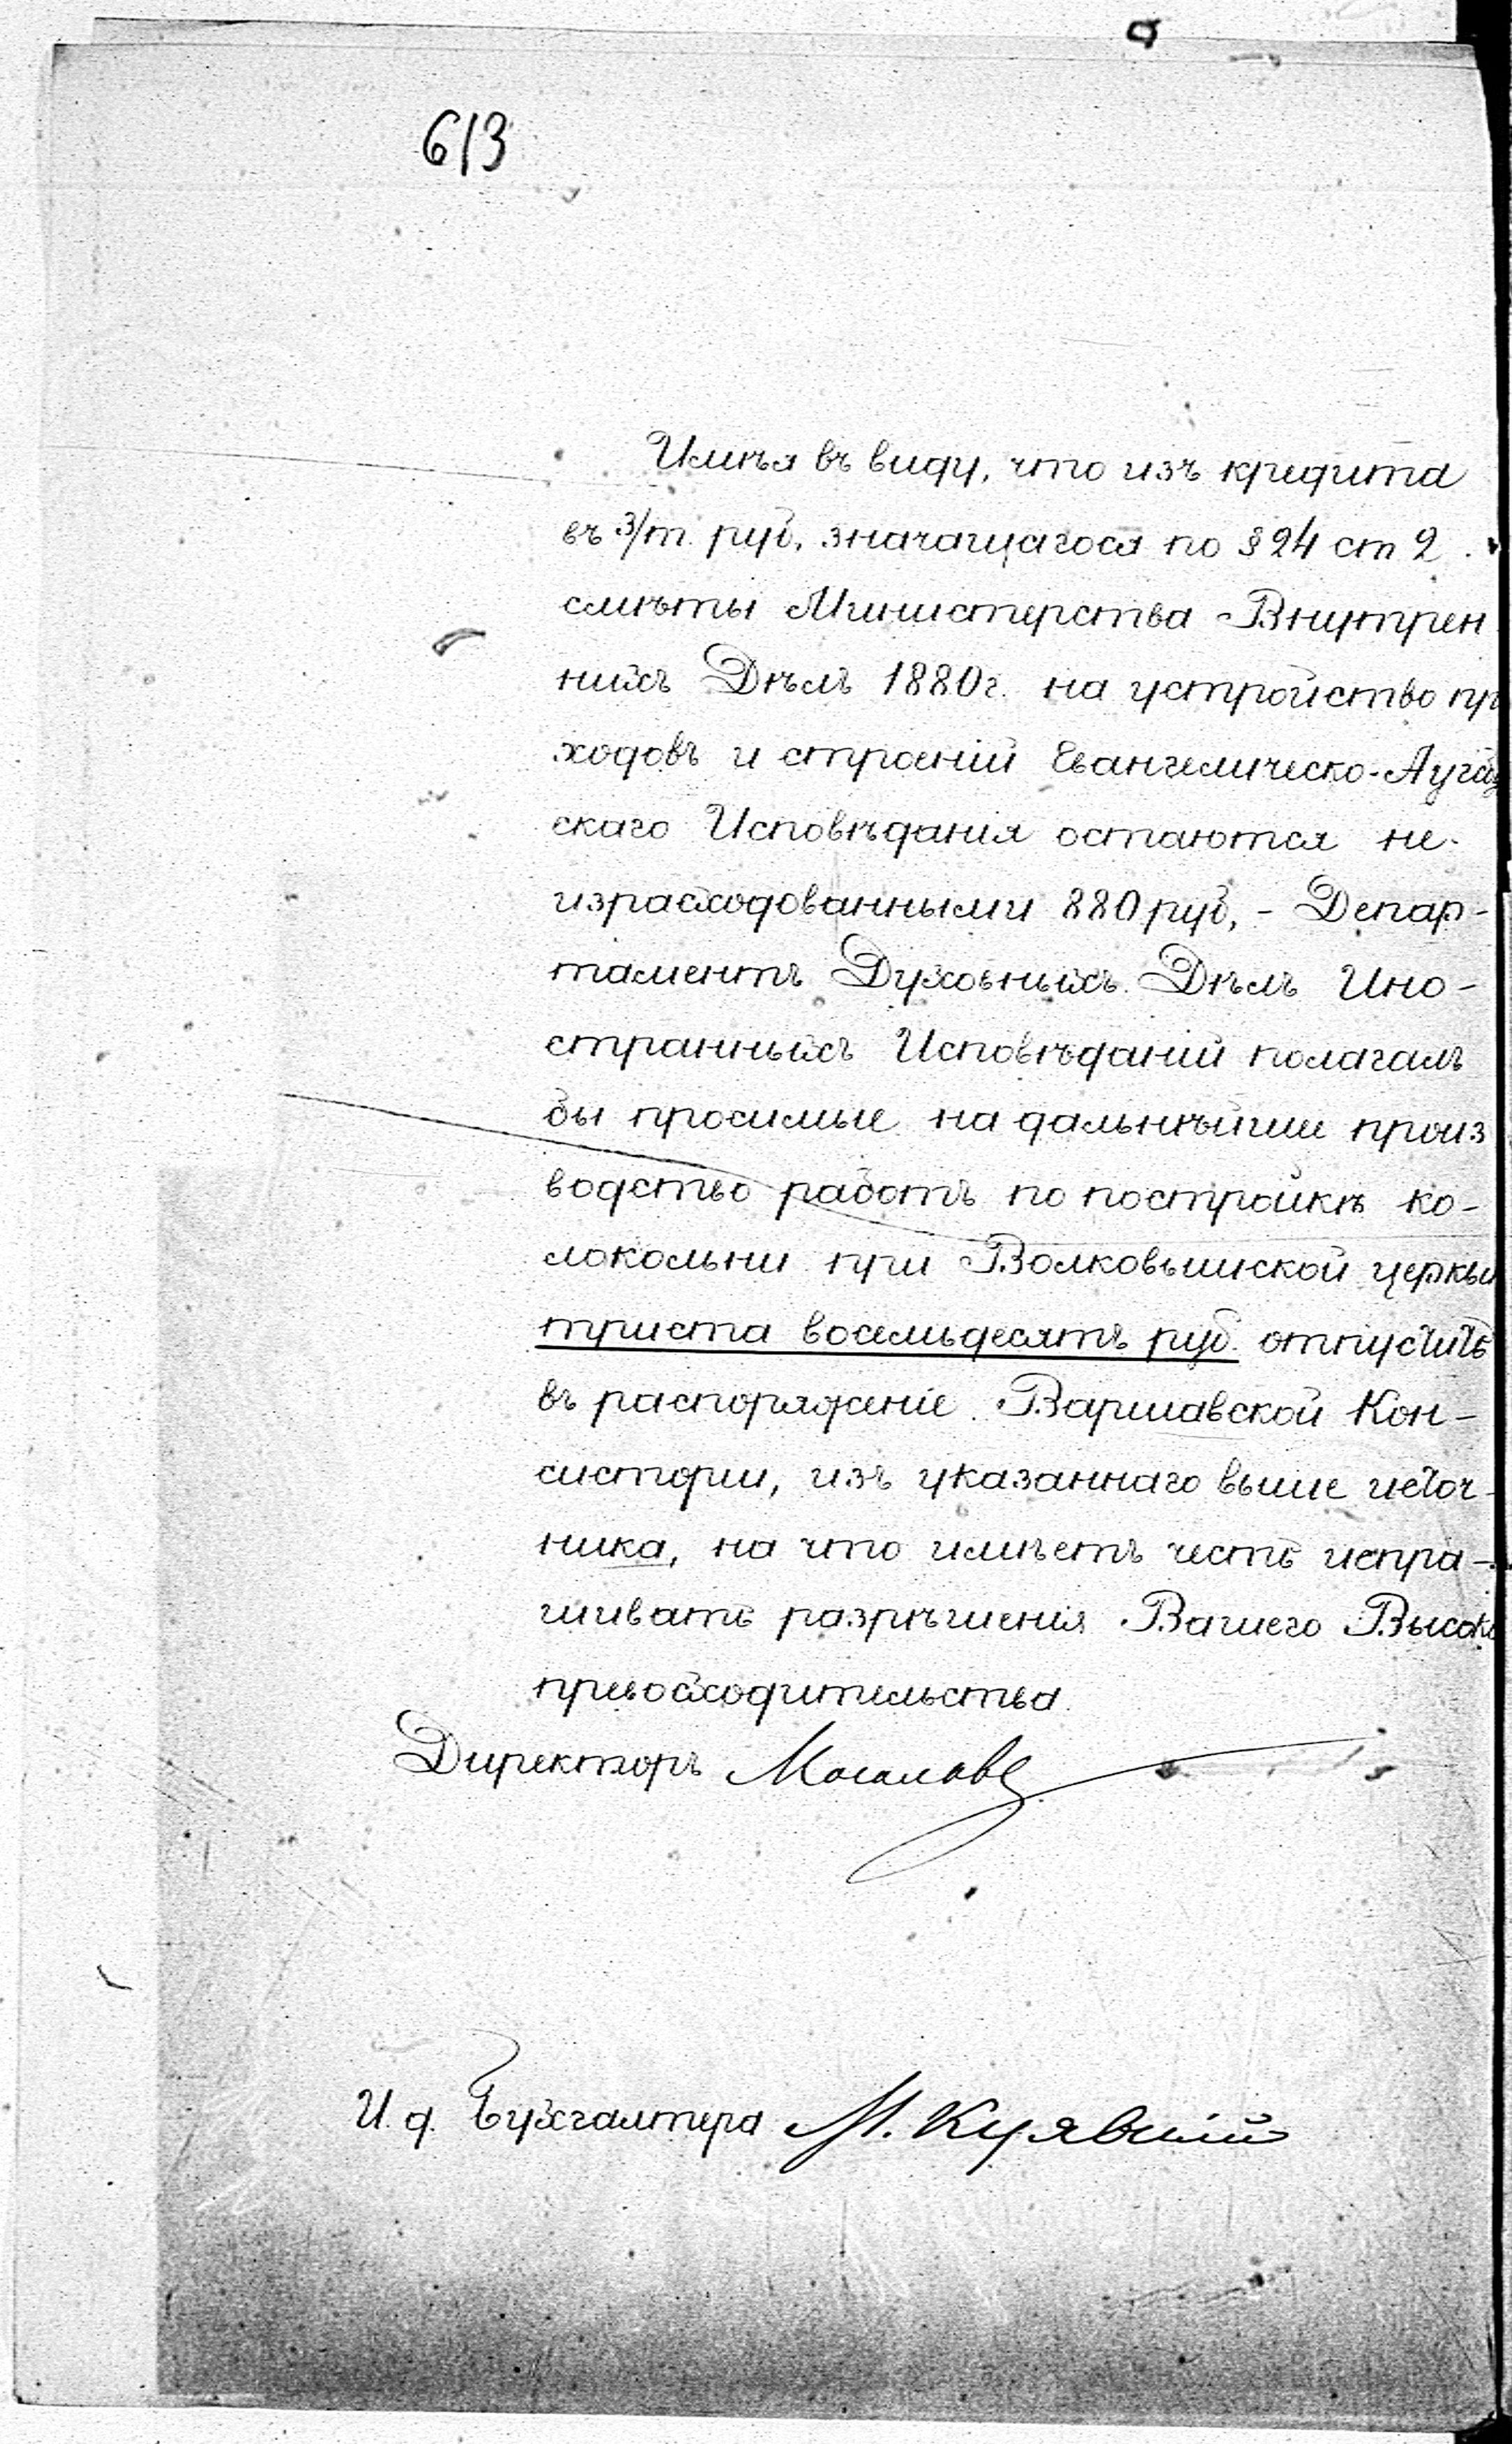 613
Имѣя въ виду, что изъ кредита
въ 3/т. руб., значащагося по § 24 ст 2
смѣты Министерства Внутрен
нихъ Дѣлъ 1880г. на устройство пр
ходовъ и строеній Евангелическо-Аугсб
скаго Исповѣданія остаются не-
израсходованными 880 руб., - Депар-
таментъ Духовныхъ Дѣлъ Ино-
странныхъ Исповѣданій полагалъ
бы просимые на дальнѣйшее произ
водство работъ по постройкѣ ко-
локольни при Волковышской церкви
триста восемьдесятъ руб. отпустить
въ распоряженіе Варшавской Кон-
систоріи, изъ указаннаго выше источ-
ника, на что имѣетъ честь испра-
шивать разрѣшенія Вашего Высоко
превосходительства.
Директоръ Мосоловъ
И. д. Бухгалтера М. Куявскій